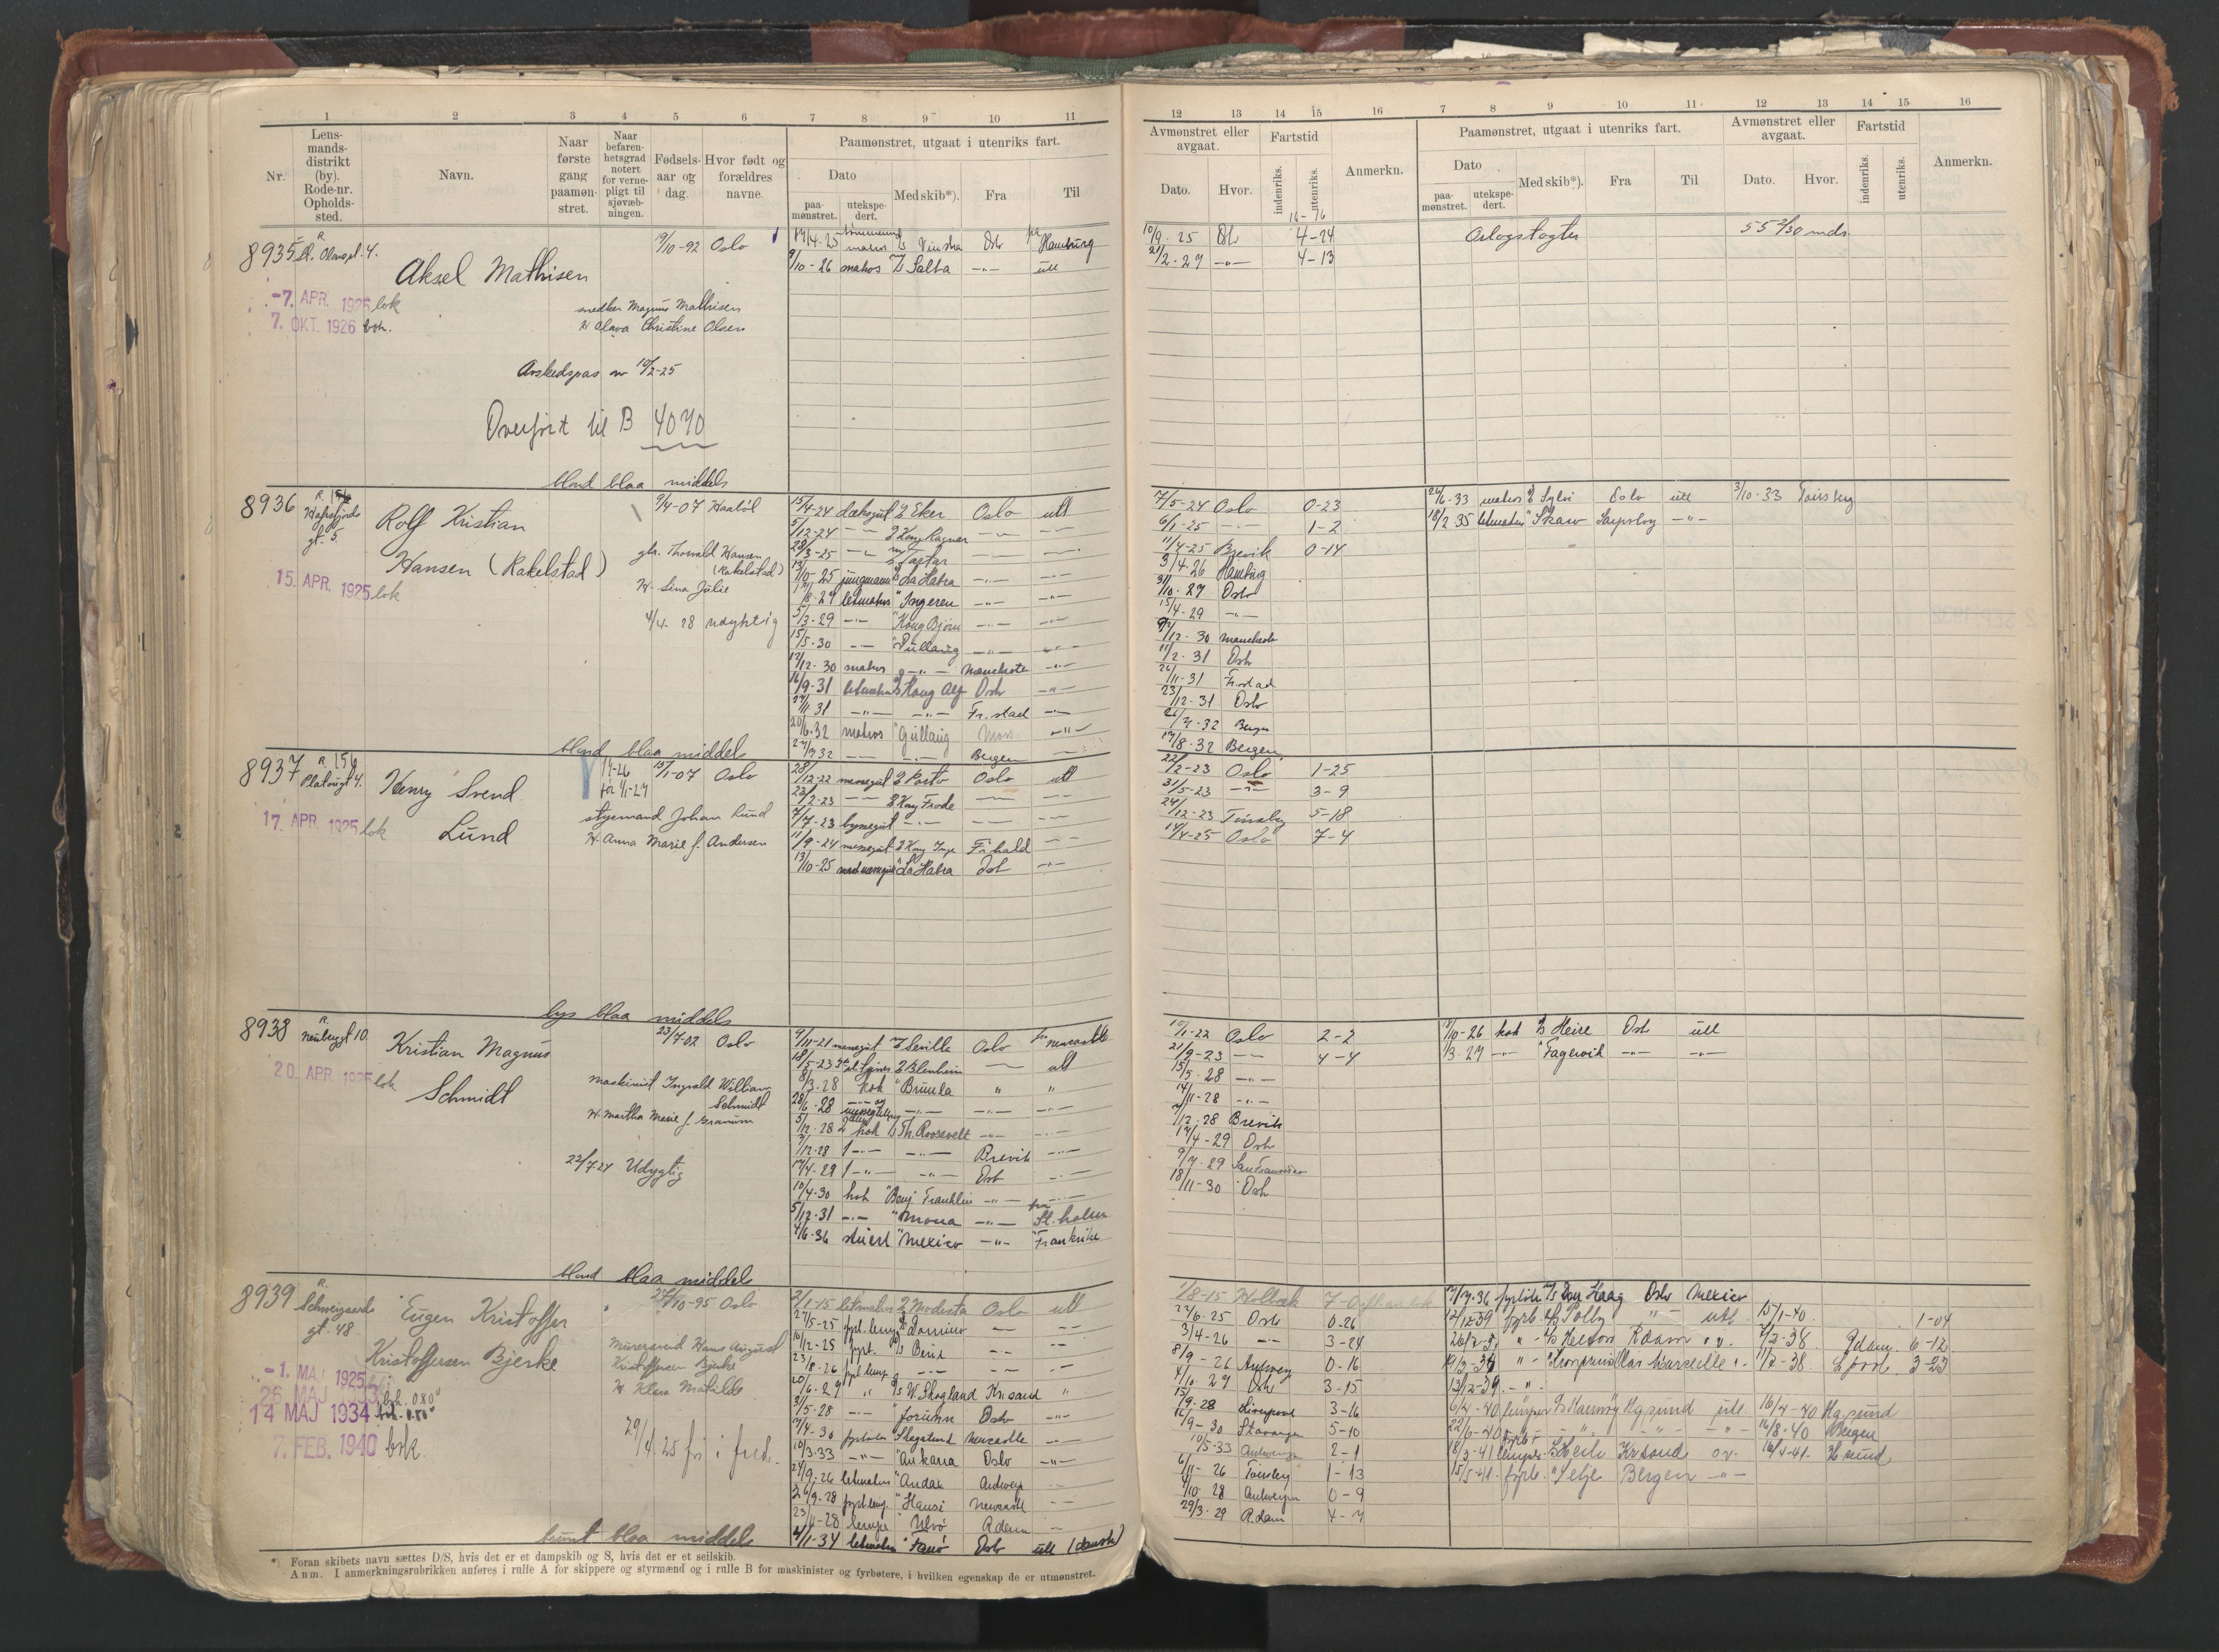 1 2 3 4 5 6 7 8 9 10 11
Nr.
Lens-
mands-
distrikt
(by).
Rode-nr.
Opholds-
sted.
Navn.
Naar
første
gang
paamøn-
stret.
Naar
befaren-
hetsgrad
notert
for verne-
pligt til
sjøvæb-
ningen.
Fødsels-
aar og
dag.
Hvor født og
forældres
navne.
Paamønstret, utgaat i utenriks fart.
Dato
paa-
mønstret.
utekspe-
dert.
Med skib*).
Fra
Til
8935 R. St. Olavspl. 4. 9/10-92 Oslo
Aksel Mathisen
-7. APR. 1925 bok
7. OKT. 1926 bok.
snedker Magnus Mathisen
H Olava Christine Olsen
Avskedspas av 10/2-25
Overført til B 4070
17/4-25 tømmermd matros Vinstra Oslo Hamburg
9/10-26 matros Salta -"- utl
blond blaa middels
8936 R. 156
Hafrsfjords
gt. 5.
Rolf Kristian
Hansen (Rakelstad)
15. APR. 1925 bok
9/4-07 Kraabøl
gbr. Thorvald Hansen
(Rakelstad)
H. Lina Julie
4/4-28 udyktig
15/4-24 dæksgut Eker Oslo utl
5/12-24 - - Kong Ragnar - -
28/3-25 - - Tartar - -
13/10-25 jungmann La Habra -"- -"-
letmatros Ingeren -"- -"-
5/3-29 -"- "Kong Bjørn -"- -"-
15/5-30 -"- "Gullaug -"- -"-
12/12-30 matros -"- Manchester -"-
16/9-31 letmatros Kong Alf Oslo -"-
27/11-31 -"- -"- Fr.stad -"-
20/6-32 matros "Gullaug Moss -"-
27/7-32 - -"- Bergen -
blond blaa middels
8937 R. 156
Platousgt 4.
Henry Svend
Lund
17. APR. 1925 bok
15/1-07 Oslo
styrmand Johan Lund
H. Anna Marie f. Andersen
28/12-22 messegut Porto Oslo utl
23/2-23 - - Kong Frode - -
7/7-23 byssegut -"- - -
11/9-24 messegut Kong Inge Fr.hald - -
13/10-25 "La Habra Oslo -"-
lys blaa middels
8938 R.
Neubergt 10.
Kristian Magnus
Schmidt
20. APR. 1925 bok
23/7-02 Oslo
maskinist Ingvald William
Schmidt
H. Martha Marie f. Granum
22/7-24 Udygtig
9/11-21 messegut Sevilla Oslo Newcastle
18/5-23 Blenheim - utl
8/3-28 kok "Brumla " "
28/6-28 -"- -"- -"-
5/12-28 kok Th. Roosevelt -"- -"-
/12-28 -"- -"- Brevik -"-
17/4-29 -"- -"- Oslo -"-
10/4-30 kok "Benj. Franklin -"- -"-
5/12-31 -"- "Mona -"- St.holm
4/6-36 stuert "Mexico -"- Frankrike
blond blaa middels
8939 R.
Schweigaards
gt. 48
Eugen Kristoffer
Kristoffersen Bjerke
-1. MAJ 1925
26 MAJ bok. 080
14 MAJ 1934 bok.
7. FEB. 1940 bok
27/10-95 Oslo
Murersvend Hans August
Kristoffersen Bjerke
H Klara Matilde
29/4 25 fri i fred.
2/1-15 letmatros Modesta Oslo utl
27/5-25 fyrb.lemp Domino - -
10/12-25 fyrb. Berit -- -
23/8-26 fyrb lemp - - -
20/6-27 " W. Skogland Kr.sand "
3/5-28 -"- "Forum Oslo -"-
17/4-30 fyrbøter Skagstind Newcastle -
10/3-33 -"- "Ankara Oslo -"-
24/9-26 letmatros "Andax Antwerp - -
26/9-28 fyrb lemp. "Hansi Newcastle - -
23/11-28 lemper "Ulvø R.dam -
4/1-34 letmatros "Fanø Oslo utl (dansk)
brunt blaa middels
*) Foran skibets navn sættes D/S, hvis det er et dampskib og S, hvis det er et seilskib.
Anm. I anmerkningsrubrikken anføres i rulle A for skippere og styrmænd og i rulle B for maskinister og fyrbøtere, i hvilken egenskap de er utmønstret.
12 13 14 15 16 7 8 9 10 11 12 13 14 15 16
Avmønstret eller
avgaat.
Dato. Hvor.
Fartstid
indenriks. utenriks.
Anmerkn.
Paamønstret, utgaat i utenriks fart.
Dato
paa-
mønstret.
utekspe-
dert.
Med skib*).
Fra
Til
Avmønstret eller
avgaat.
Dato. Hvor.
Fartstid
indenriks. utenriks.
Anmerkn.
16-16
10/9-25 Oslo 4-24 Orlogstogter 55 2/30 mdr.
21/2-27 -"- 4-13
7/5-24 Oslo 0-23 26/6-33 matros Sylvi Oslo utl 3/10-33 Tønsberg
6/1-25 -"- 1-2 18/2 35 letmatros "Skaw Sarpsborg -"-
11/4-25 Brevik 0-14
3/4-26 Hamburg
31/10-27 Oslo
15/4-29 -"-
/12-30 Manchester
11/2-31 Oslo
26/11-31 Fr.stad
23/12-31 Oslo
26/7-32 Bergen
17/8-32 Bergen
22/2-23 Oslo 1-25
31/5-23 -"- 3-9
24/12-23 Tønsberg 5-18
14/4-25 Oslo 7-4
10/1-22 Oslo 2-2 18/10-26 kok Heire Oslo utl
21/9-23 - - 4-4 1/3-27 -"- "Fagervik -"- -"-
15/5-28 -"-
14/11-28 -"-
/12-28 Brevik
17/4-29 Oslo
9/7-29 San Francisco
18/11-30 Oslo
1/8-15 7-0 17/7-36 fyrbøter Den Haag Oslo Mexico
22/6-25 Oslo 0-26 12/12-39 fyrb. Solby " utl. 15/1-40. 1-04
3/4-26 -"- 3-24 Hektor Rdam " 7/2-38 Rdam. 6-12
8/9-26 Antwerp 0-16 Marseille 11/2-38. 3-23
4/10-27 Oslo 3-15 13/12-39. - " -
15/9-28 Liverpool 3-16 6/4-40 lemper Karmøy Hg.sund utl. 16/4-40 Hg.sund
16/9-30 Stavanger 5-10 22/6-40 fyrb. - " - - " - - " - 16/8-40 Bergen
10/5-33 Antwerpen 2-1 18/3-41 lemper Kr.sund 16/4-41. H.sund
6/11-26 Tønsberg 1-13 15/5-41. fyrb. "Selje Bergen - " -
4/10-28 Antwerpen 0-9
29/3-29 R.dam 4-7